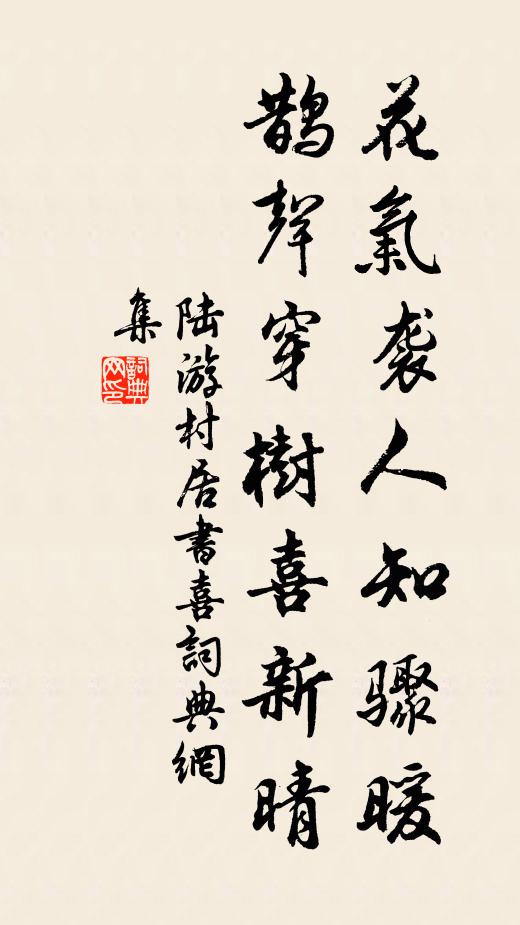 花氣袭人知驟暖
鵲聲穿樹喜新晴
陆游村居書喜詞典網
集
詞典
网印